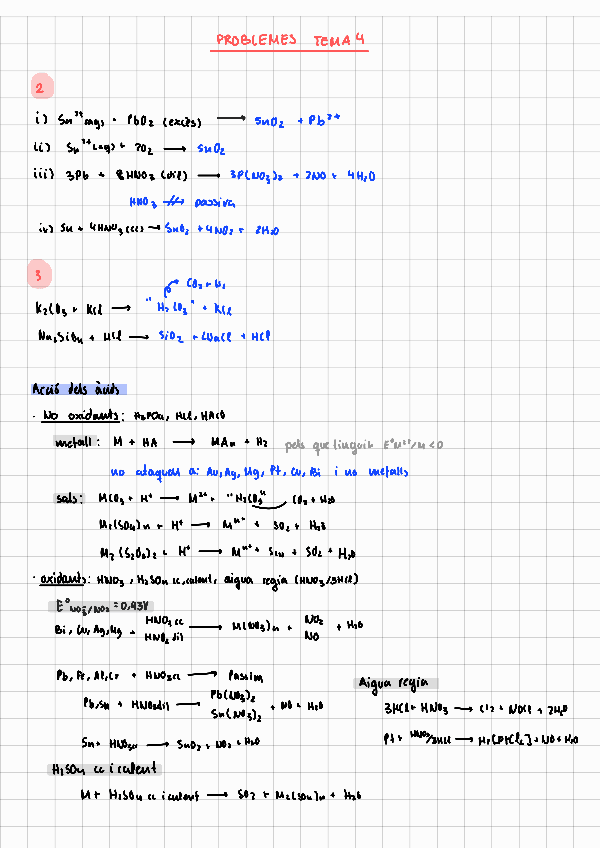 PROBLEMES TEMA 4
2
i) Sn²⁺(aq) + PbO₂ (excés) → SnO₂ + Pb²⁺
ii) Sn²⁺(aq) + ?O₂ → SnO₂
iii) 3Pb + 8HNO₃ (dil) → 3P(NO₃)₂ + 2NO + 4H₂O
HNO₃ passiva
iv) Sn + 4HNO₃(cc) → SnO₂ + 4NO₂ + 2H₂O
3
CO₂ + H₂
K₂CO₃ + KCl → "H₂CO₃" + KCl
Na₄SiO₄ + HCl → SiO₂ + 4NaCl + HCl
Acció dels àcids
· No oxidants: H₃PO₄, HCl, HAcO
metall: M + HA → MAn + H₂ pels que tinguin E°Mⁿ⁺/M < 0
no ataquen a: Au, Ag, Hg, Pt, Cu, Bi i no metalls
sals: MCO₃ + H⁺ → M²⁺ + "H₂CO₃" CO₂ + H₂O
M₂(SO₄)n + H⁺ → Mⁿ⁺ + SO₂ + H₂O
M₂(S₂O₃)₂ + H⁺ → Mⁿ⁺ + S₍ₛ₎ + SO₂ + H₂O
· oxidants: HNO₃, H₂SO₄ cc, calent, aigua regia (HNO₃/3HCl)
E°NO₃⁻/NO₂ = 0,93V
Bi, Cu, Ag, Hg + HNO₃ cc / HNO₃ dil → M(NO₃)n + NO₂ / NO + H₂O
Pb, Fe, Al, Cr + HNO₃cc → Passiva
Aigua regia
Pb/Sn + HNO₃dil → Pb(NO₃)₂ / Sn(NO₃)₂ + NO + H₂O
3HCl + HNO₃ → Cl₂ + NOCl + 2H₂O
Sn + HNO₃cc → SnO₂ + NO₂ + H₂O
Pt + HNO₃/3HCl → H₂[PtCl₆] + NO + H₂O
H₂SO₄ cc i calent
M + H₂SO₄ cc i calent → SO₂ + M₂(SO₄)n + H₂O